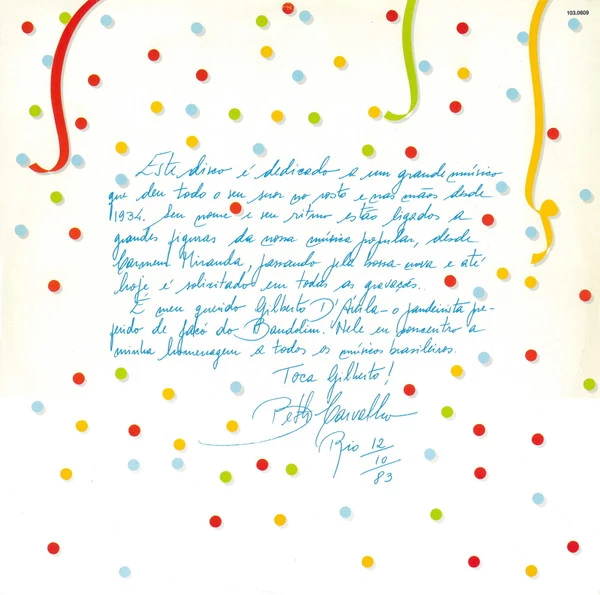 103.0609
Este disco é dedicado a um grande músico
que deu todo o seu suor no rosto e nas mãos desde
1934. Seu nome e seu ritmo estão ligados a
grandes figuras da nossa música popular, desde
Carmem Miranda, passando pela bossa-nova e até
hoje é solicitado em todas as gravações.
É meu querido Gilberto D'Ávila - o pandeirista pre-
ferido de Jacó do Bandolim. Nele eu concentro a
minha homenagem a todos os músicos brasileiros.
Toca Gilberto!
Beth Carvalho
Rio 12/10/83